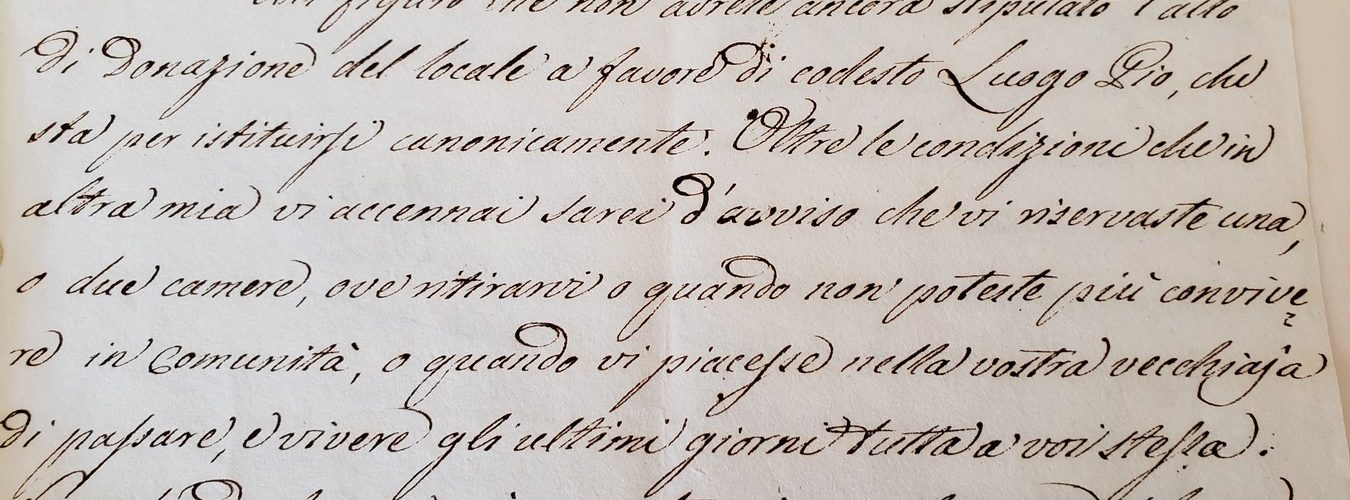 figuro che non avrete ancora stipulato l'atto
di Donazione del locale a favore di codesto Luogo Pio, che
sta per istituirsi canonicamente. Oltre le condizioni che in
altra mia vi accennai sarei d'avviso che vi riservaste una,
o due camere, ove ritirarvi o quando non poteste più convive=
re in Comunità, o quando vi piacesse nella vostra vecchiaja
di passare, e vivere gli ultimi giorni tutta a voi stessa.